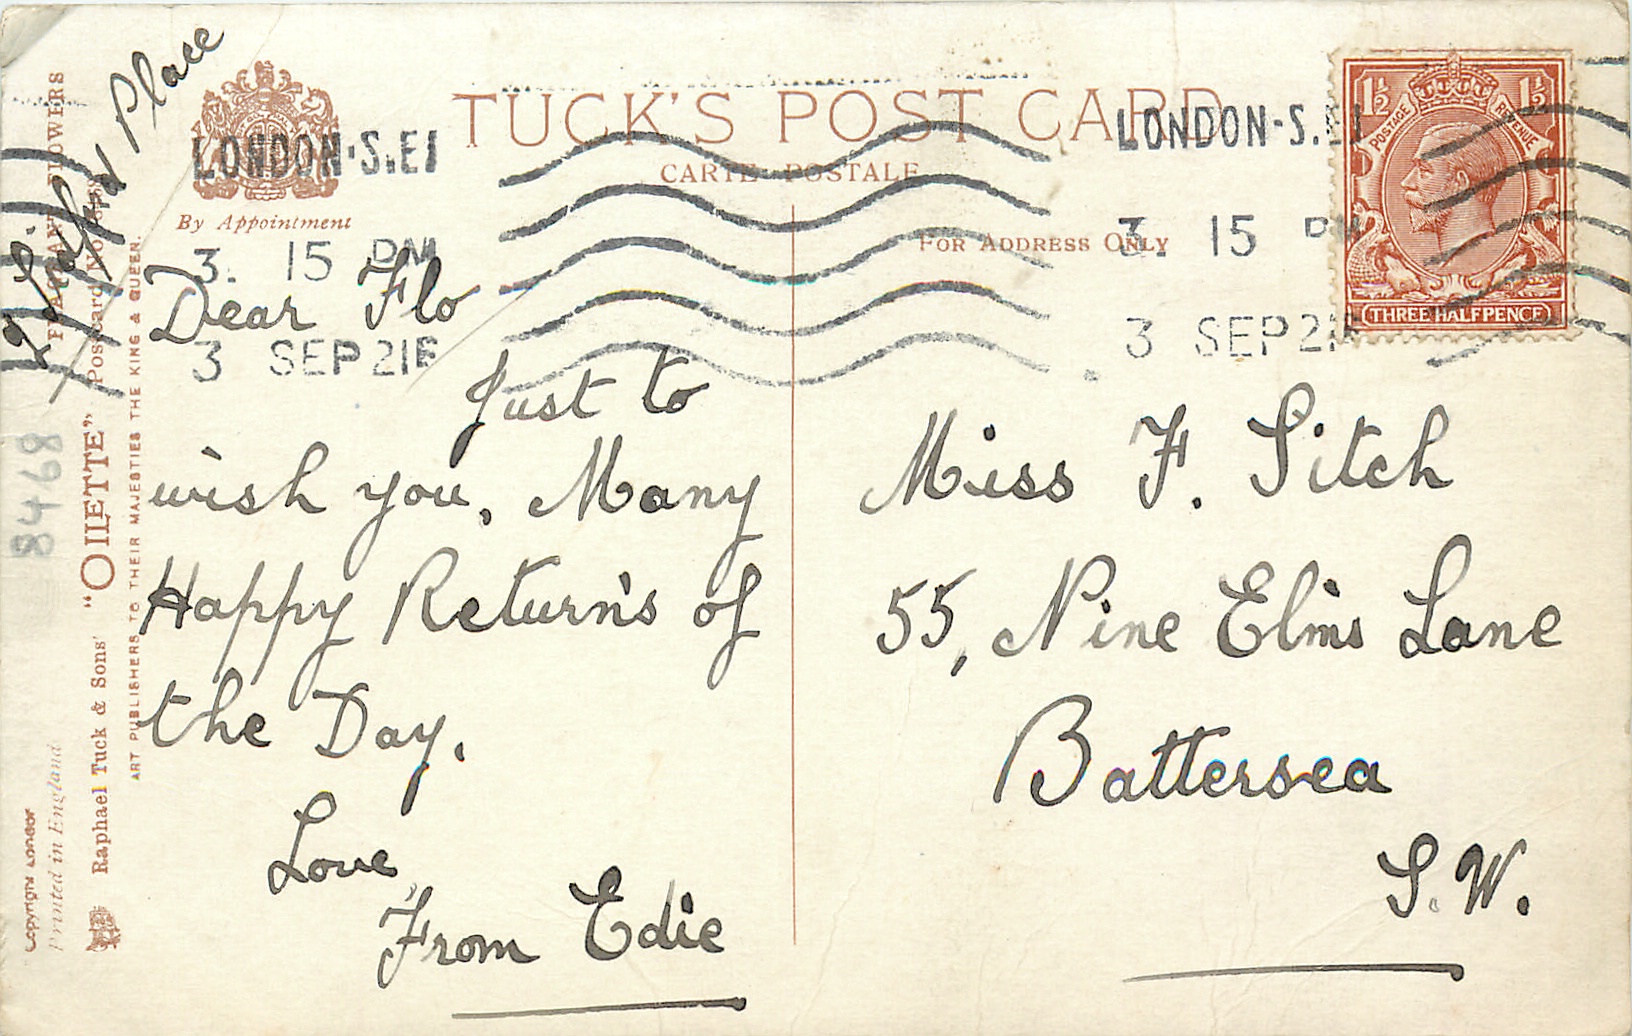 TUCK'S POST CARD
CARTE POSTALE
By Appointment
FOR ADDRESS ONLY
LONDON·S.E1
3. 15 PM
3 SEP 21
LONDON·S.E1
3. 15 PM
3 SEP 21
THREE HALFPENCE
1½
1½
POSTAGE
REVENUE
Place
Dear Flo
Just to
wish you, Many
Happy Return's of
the Day.
Love,
From Edie
Miss F. Sitch
55, Nine Elms Lane
Battersea
S.W.
8468
Raphael Tuck & Sons' "OILETTE" Postcard No.
ART PUBLISHERS TO THEIR MAJESTIES THE KING & QUEEN.
Copyright London
Printed in England